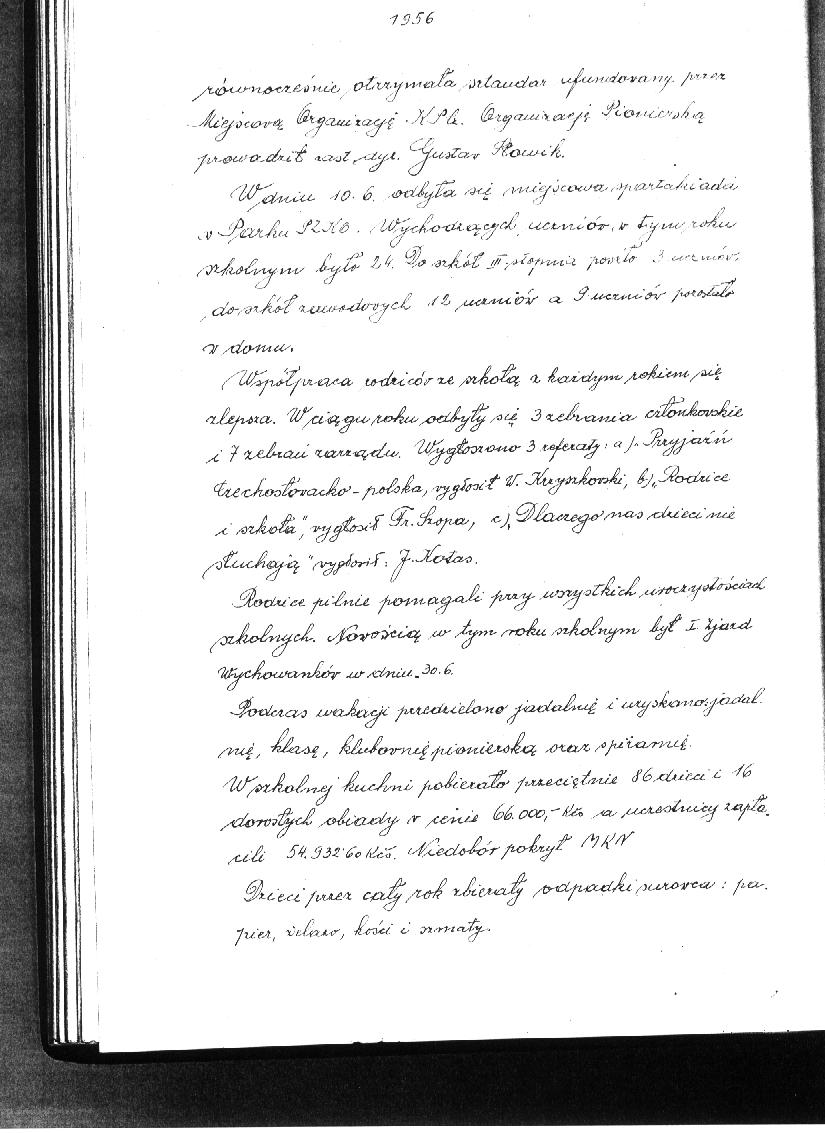 1956
równocześnie otrzymała sztandar ufundowany przez
Miejscową Organizację KPCz. Organizację Pionierską
prowadził zast. dyr. Gustav Słowik.
W dniu 10.6. odbyła się miejscowa spartakiada
w Parku PZKO. Wychodzących uczniów w tym roku
szkolnym było 24. Do szkół III. stopnia poszło 3 uczniów,
do szkół zawodowych 12 uczniów a 9 uczniów pozostało
w domu.
Współpraca rodziców ze szkołą z każdym rokiem się
zlepsza. W ciągu roku odbyły się 3 zebrania członkowskie
i 7 zebrań zarządu. Wygłoszono 3 referaty: a) „Przyjaźń
czechosłovacko-polska, wygłosił W. Krzyszkovski, b) „Rodzice
i szkoła", wygłosił Fr. Szopa, c) „Dlaczego nas dzieci nie
słuchają" wygłosił: J. Kotas.
Rodzice pilnie pomagali przy wszystkich uroczystościach
szkolnych. Novością w tym roku szkolnym był I. Zjazd
Wychowanków w dniu 30.6.
Podczas wakacji przedzielono jadalnię i uzyskano: jadal-
nię, klasę, klubovnię pionierską oraz spiżarnię.
W szkolnej kuchni pobierało przeciętnie 86 dzieci i 16
dorosłych obiady v cenie 66.000,- Kčs a uczestnicy zapła-
cili 54.932·60 Kčs. Niedobór pokrył MKN
Dzieci przez cały rok zbierały odpadki surovca: pa-
pier, żelazo, kości i szmaty.